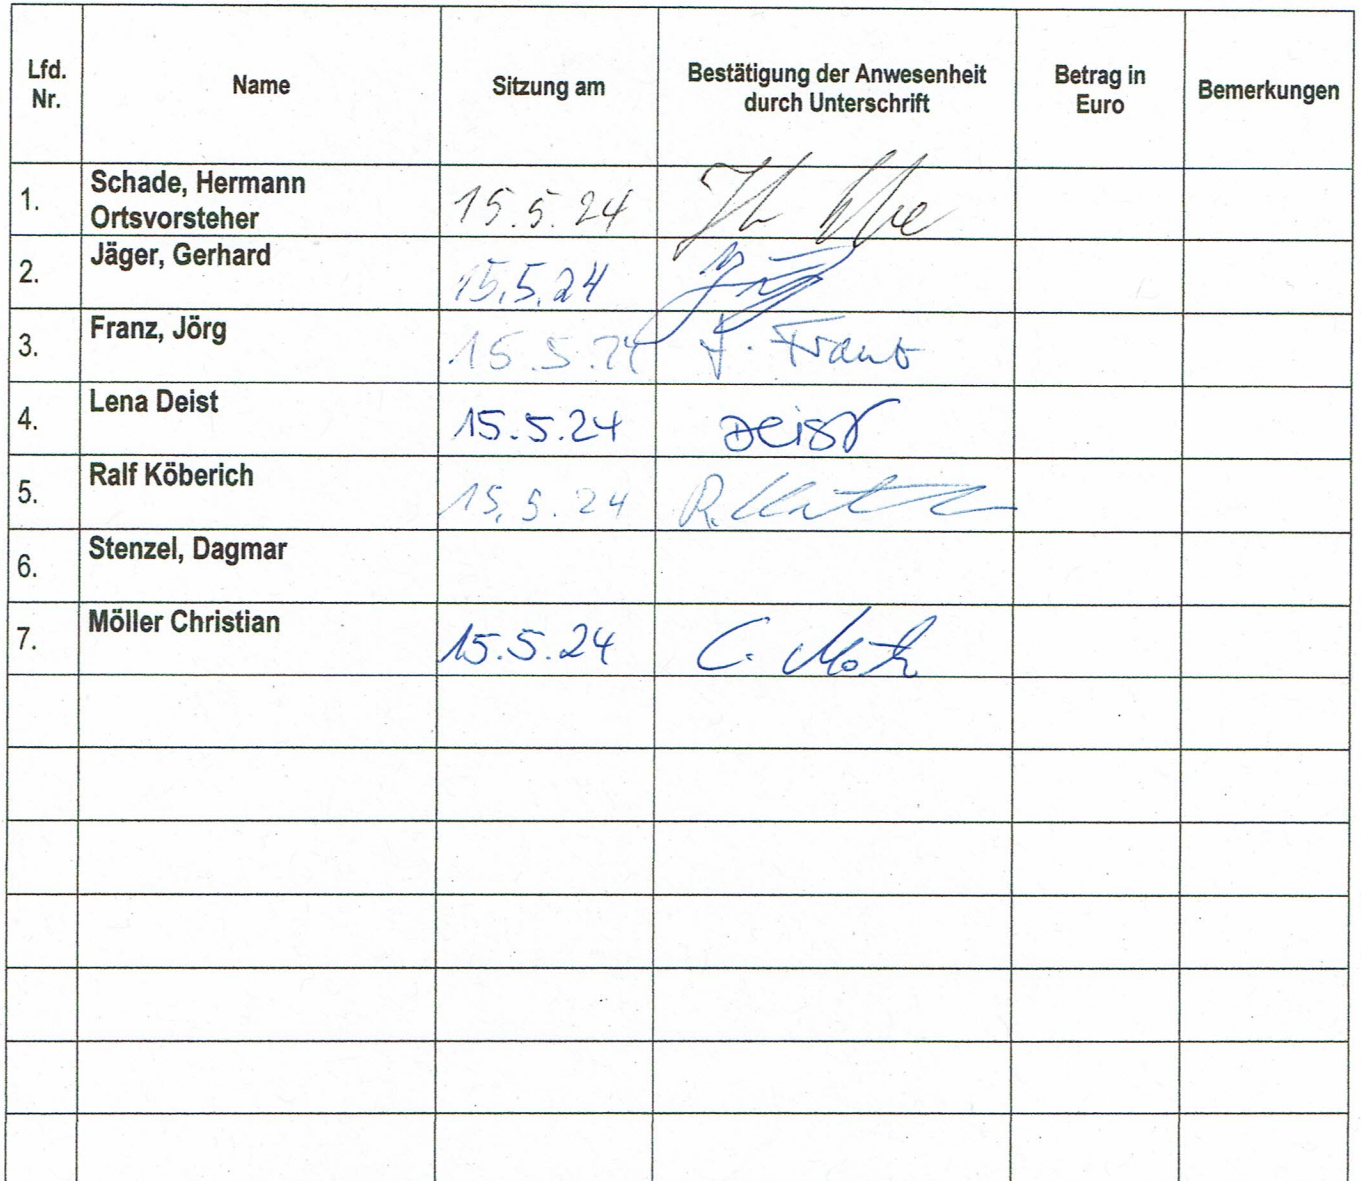 Lfd.
Nr.
Name
Sitzung am
Bestätigung der Anwesenheit
durch Unterschrift
Betrag in
Euro
Bemerkungen
1.
Schade, Hermann
Ortsvorsteher
15.5.24
2.
Jäger, Gerhard
15.5.24
3.
Franz, Jörg
15.5.24
J. Franz
4.
Lena Deist
15.5.24
Deist
5.
Ralf Köberich
15.5.24
R.
6.
Stenzel, Dagmar
7.
Möller Christian
15.5.24
C.